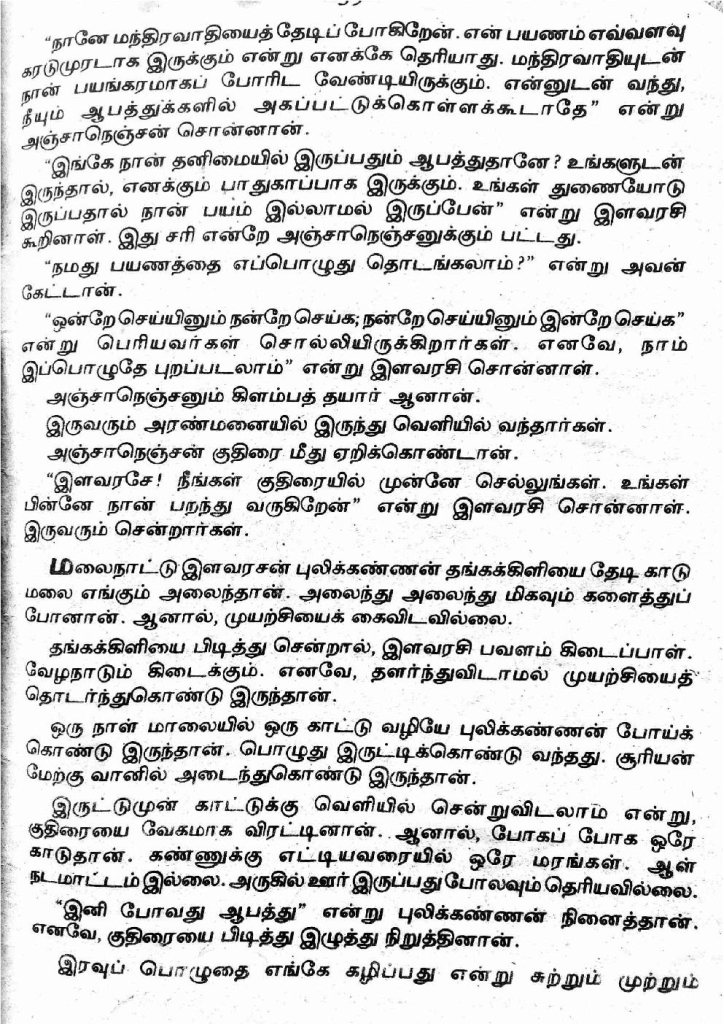 “நானே மந்திரவாதியைத் தேடிப் போகிறேன். என் பயணம் எவ்வளவு
கரடுமுரடாக இருக்கும் என்று எனக்கே தெரியாது. மந்திரவாதியுடன்
நான் பயங்கரமாகப் போரிட வேண்டியிருக்கும். என்னுடன் வந்து,
நீயும் ஆபத்துக்களில் அகப்பட்டுக்கொள்ளக்கூடாதே” என்று
அஞ்சாநெஞ்சன் சொன்னான்.
“இங்கே நான் தனிமையில் இருப்பதும் ஆபத்துதானே? உங்களுடன்
இருந்தால், எனக்கும் பாதுகாப்பாக இருக்கும். உங்கள் துணையோடு
இருப்பதால் நான் பயம் இல்லாமல் இருப்பேன்” என்று இளவரசி
கூறினாள். இது சரி என்றே அஞ்சாநெஞ்சனுக்கும் பட்டது.
“நமது பயணத்தை எப்பொழுது தொடங்கலாம்?” என்று அவன்
கேட்டான்.
“ஒன்றே செய்யினும் நன்றே செய்க; நன்றே செய்யினும் இன்றே செய்க”
என்று பெரியவர்கள் சொல்லியிருக்கிறார்கள். எனவே, நாம்
இப்பொழுதே புறப்படலாம்” என்று இளவரசி சொன்னாள்.
அஞ்சாநெஞ்சனும் கிளம்பத் தயார் ஆனான்.
இருவரும் அரண்மனையில் இருந்து வெளியில் வந்தார்கள்.
அஞ்சாநெஞ்சன் குதிரை மீது ஏறிக்கொண்டான்.
“இளவரசே! நீங்கள் குதிரையில் முன்னே செல்லுங்கள். உங்கள்
பின்னே நான் பறந்து வருகிறேன்” என்று இளவரசி சொன்னாள்.
இருவரும் சென்றார்கள்.
மலைநாட்டு இளவரசன் புலிக்கண்ணன் தங்கக்கிளியை தேடி காடு
மலை எங்கும் அலைந்தான். அலைந்து அலைந்து மிகவும் களைத்துப்
போனான். ஆனால், முயற்சியைக் கைவிடவில்லை.
தங்கக்கிளியை பிடித்து சென்றால், இளவரசி பவளம் கிடைப்பாள்.
வேழநாடும் கிடைக்கும். எனவே, தளர்ந்துவிடாமல் முயற்சியைத்
தொடர்ந்துகொண்டு இருந்தான்.
ஒரு நாள் மாலையில் ஒரு காட்டு வழியே புலிக்கண்ணன் போய்க்
கொண்டு இருந்தான். பொழுது இருட்டிக்கொண்டு வந்தது. சூரியன்
மேற்கு வானில் அடைந்துகொண்டு இருந்தான்.
இருட்டுமுன் காட்டுக்கு வெளியில் சென்றுவிடலாம் என்று,
குதிரையை வேகமாக விரட்டினான். ஆனால், போகப் போக ஒரே
காடுதான். கண்ணுக்கு எட்டியவரையில் ஒரே மரங்கள். ஆள்
நடமாட்டம் இல்லை. அருகில் ஊர் இருப்பது போலவும் தெரியவில்லை.
“இனி போவது ஆபத்து” என்று புலிக்கண்ணன் நினைத்தான்.
எனவே, குதிரையை பிடித்து இழுத்து நிறுத்தினான்.
இரவுப் பொழுதை எங்கே கழிப்பது என்று சுற்றும் முற்றும்